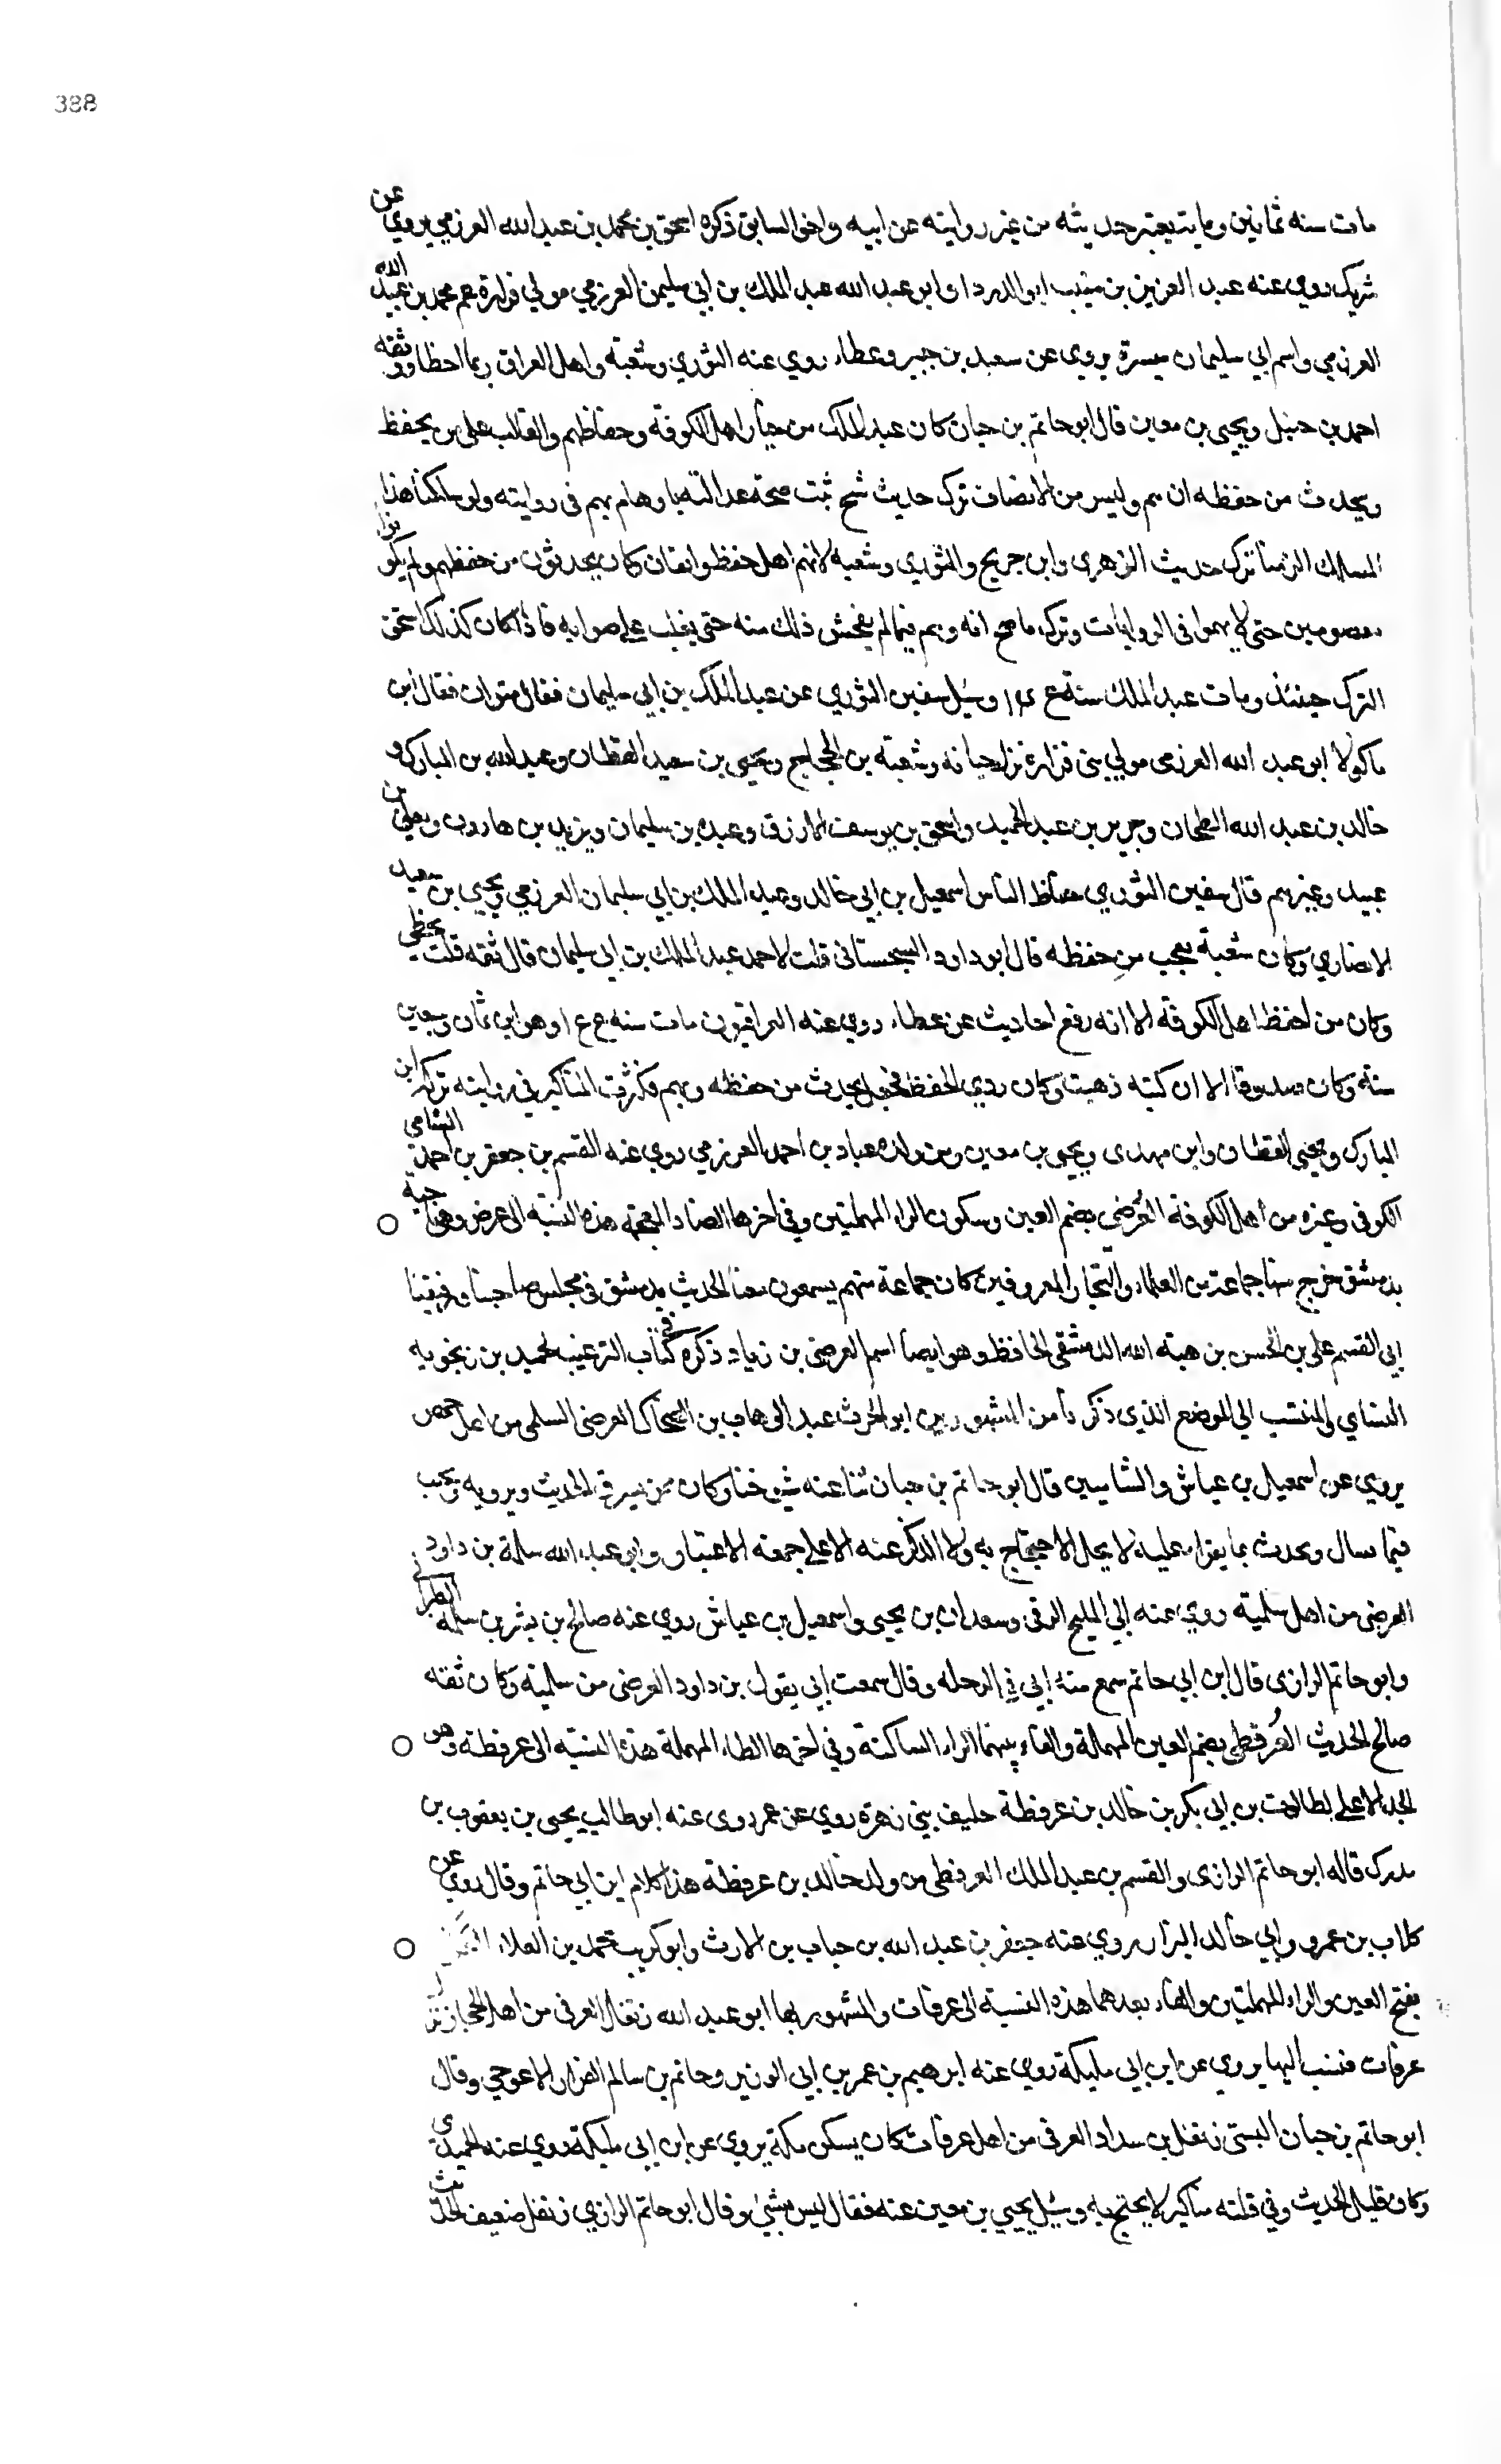 388
مات سنه ثمانين وماية يعتبر حديثه من غير روايته عن ابيه واخو السابق ذكره اسحق بن محمد بن عبد الله العرزمي يروي عن
شريك روي عنه عبد العزيز بن منيب ابو الدرداء وابو عبد الله عبد الملك بن ابي سليمن العرزمي مولي فزارة عم محمد بن عبيد الله
العرزمي واسم ابي سليمان ميسرة يروي عن سعيد بن جبير وعطاء روي عنه الثوري وشعبة واهل العراق ربما اخطا ووثقه
احمد بن حنبل ويحيى بن معين قال ابو حاتم بن حبان كان عبد الملك من خيار اهل الكوفة وحفاظهم والغالب على من يحفظ
ويحدث من حفظه ان يهم وليس من الانصاف ترك حديث شيخ ثبت صحة عدالته باوهام يهم في روايته ولو سلكنا هذا
المسلك الزمنا ترك حديث الزهري وابن جريج والثوري وشعبة لانهم اهل حفظ واتقان كان يحدثون من حفظهم ولم يكونوا
معصومين حتى لا يهموا في الروايات وترك ما صح انه وهم فيما لم يفحش ذلك منه حتى يغلب على صوابه فاذا كان كذلك استحق
الترك حينئذ ومات عبد الملك سنة وسيل سفين الثوري عن عبد الملك بن ابي سليمان فقال ميزان فقال ابن
ماكولا ابو عبد الله العرزمي مولي بني فزارة نزل جبانه وشعبة بن الحجاج ويحيى بن سعيد القطان وعبد الله بن المبارك و
خالد بن عبد الله الطحان وجرير بن عبد الحميد واسحق بن يوسف الازرق وعبده بن سليمان ويزيد بن هارون ويعلي بن
عبيد وغيرهم قال سفين الثوري حفاظ الناس اسمعيل بن ابي خالد وعبد الملك بن ابي سليمان العرزمي ويحيى بن سعيد
الانصاري وكان شعبة يعجب من حفظه قال ابو داود السجستاني قلت لاحمد عبد الملك بن ابي سليمان قال ثقه قلت يخطي
وكان من احفظ اهل الكوفة الا انه رفع احاديث عن عطاء روي عنه العراقيون مات سنه وهو ابن ثمان وسبعين
سنة وكان صدوقا الا ان كتبه ذهبت وكان ردي الحفظ فجعل يحدث من حفظه ويهم فكثرت المناكير في روايته تركه ابن
المبارك ويحيى القطان وابن مهدي ويحيى بن معين ومن ولده عباد بن احمد العرزمي روي عنه القسم بن جعفر بن احمد الشامي
الكوفي وغيره من اهل الكوفة العُرضي بضم العين وسكون الراء المهملتين وفي اخرها الضاد المعجمة هذه النسبة الى عرض وهي ناحية
بدمشق خرج منها جماعة من العلماء والتجار المعروفين كان جماعة منهم يسمعون معنا الحديث بدمشق في مجلس صاحبنا ورفيقنا
ابي القسم علي بن الحسن بن هبة الله الدمشقي الحافظ وهو ايضا اسم العرضي بن زياد ذكره في كتاب الترغيب لحميد بن زنجويه
النساي والمنتسب الى الموضع الذي ذكرنا من المشهورين ابو الحرث عبد الوهاب بن الضحاك العرضي السلمي من اهل حمص
يروي عن اسمعيل بن عياش والشاميين قال ابو حاتم بن حبان ثنا عنه شيوخنا وكان ممن يسرق الحديث ويرويه ويجيب
فيما يسال ويحدث بما يقرا عليه لا يحل الاحتجاج به ولا الذكر عنه الا على جهة الاعتبار وابو عبد الله سلمة بن داود
العرضي من اهل سلمية روي عنه ابي المليح الرقي وسعدان بن يحيى واسمعيل بن عياش روي عنه صالح بن بشر بن سلمة الطبراني
وابو حاتم الرازي قال ابن ابي حاتم سمع منه ابي في الرحله وقال سمعت ابي يقول بن داود العرضي من سلمية وكان ثقه
صالح الحديث العُرفطي بضم العين المهملة والفاء بينهما الراء الساكنة وفي اخرها الطاء المهملة هذه النسبة الى عرفطة وهو
الجد الاعلى لطالوت بن ابي بكر بن خالد بن عرفطة حليف بني زهرة روي عن عمر روى عنه ابو طالب يحيى بن يعقوب بن
مدرك قاله ابو حاتم الرازي والقسم بن عبد الملك العرفطي من ولد خالد بن عرفطة هذا كلام ابن ابي حاتم وقال روي عن
كلاب بن عمرو وابي خالد البزار روي عنه جعفر بن عبد الله بن حباب بن الارث وابو كريب محمد بن العلاء
بفتح العين والراء المهملتين والفاء بعدهما هذه النسبة الى عرفات والمشهور بها ابو عبد الله زنفل العرفي من اهل الحجاز نزل
عرفات فنسب اليها يروي عن ابن ابي مليكة روي عنه ابرهيم بن عمر بن ابي الوزير وحاتم بن سالم القزاز الاعوجي وقال
ابو حاتم بن حبان البستي زنفل بن شداد العرفي من اهل عرفات كان يسكن مكة يروي عن ابن ابي مليكة روي عنه الحميدي
وكان قليل الحديث وفي قلته مناكير لا يحتج به وسيل يحيى بن معين عنه فقال ليس بشئ وقال ابو حاتم الرازي زنفل ضعيف الحديث